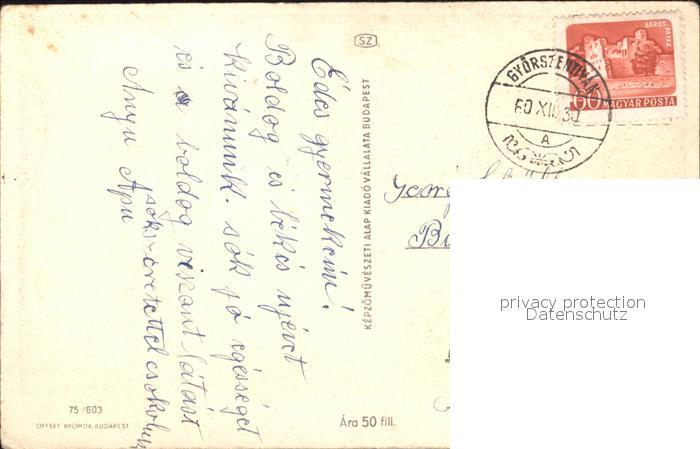 SZ
Édes gyermekeim!
Boldog és békés újévet
Kivánunk. sok jó egésséget
és a boldog viszont látást
soksz. eretettel csokolunk
Anyu Apu
KÉPZŐMŰVÉSZETI ALAP KIADÓVÁLLALATA BUDAPEST
75/603
OFFSET NYOMDA, BUDAPEST
Ára 50 fill.
SÁROSPATAK
60 MAGYAR POSTA
GYŐRSZENTIVÁN
60 XII 30
A
privacy protection
Datenschutz